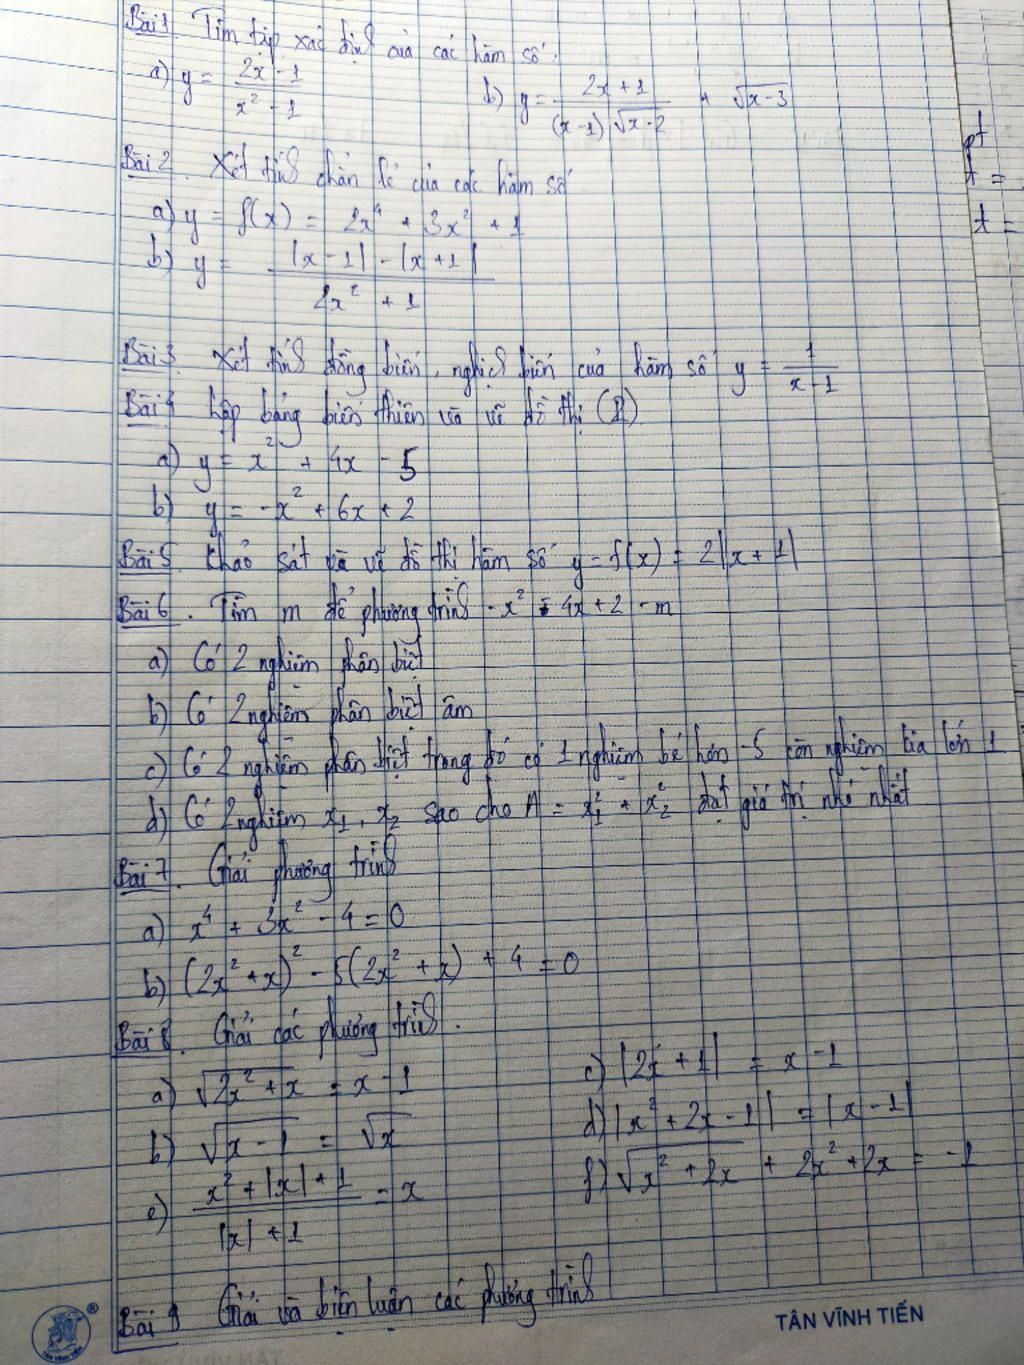 Bài 1 Tìm tập xác định của các hàm số.
a) y = (2x - 1)/(x² - 1)    b) y = (2x + 1)/((x - 1)√(x - 2)) + √(x - 3)
pt
Bài 2. Xét tính chẵn lẻ của các hàm số
t =
a) y = f(x) = 2x⁴ + 3x² + 1
t =
b) y = (|x - 1| - |x + 1|)/(2x² + 1)
Bài 3. Xét tính đồng biến, nghịch biến của hàm số y = 1/(x - 1)
Bài 4 Lập bảng biến thiên và vẽ đồ thị (P).
a) y = x² + 4x - 5
b) y = -x² + 6x + 2
Bài 5. Khảo sát và vẽ đồ thị hàm số y = f(x) = 2|x + 1|
Bài 6. Tìm m để phương trình -x² - 4x + 2 - m
a) Có 2 nghiệm phân biệt
b) Có 2 nghiệm phân biệt âm
c) Có 2 nghiệm phân biệt trong đó có 1 nghiệm bé hơn -5 còn nghiệm kia lớn 1
d) Có 2 nghiệm x₁, x₂ sao cho A = x₁² + x₂² đạt giá trị nhỏ nhất
Bài 7. Giải phương trình
a) x⁴ + 3x² - 4 = 0
b) (2x² + x)² - 5(2x² + x) + 4 = 0
Bài 8. Giải các phương trình.
a) √(2x² + x) = x - 1    c) |2x + 1| = x - 1
b) √(x - 1) = √x    d) |x² + 2x - 1| = |x - 1|
e) (x² + |x| + 1)/(|x| + 1) = x    f) √(x² + 2x) + 2x² + 2x = -1
Bài 9 Giải và biện luận các phương trình
TÂN VĨNH TIẾN